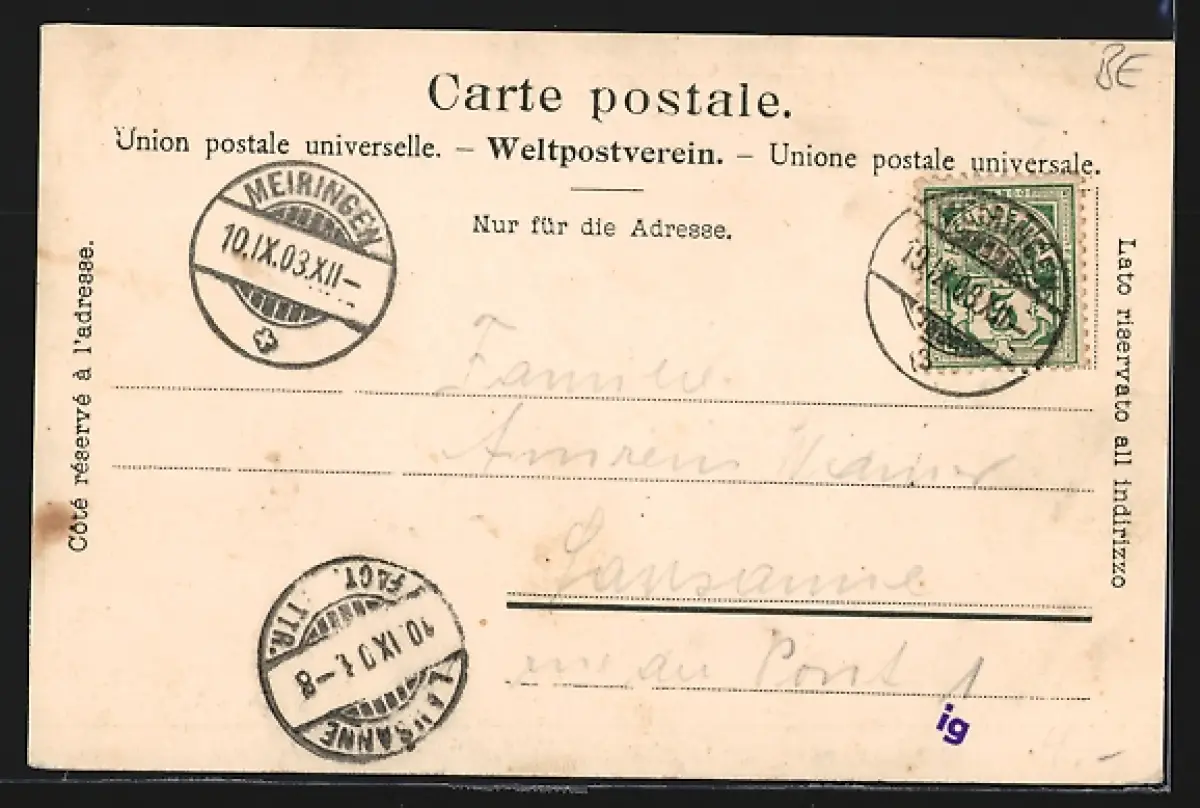 BE
Carte postale.
Union postale universelle. – Weltpostverein. – Unione postale universale.
Nur für die Adresse.
MEIRINGEN
10.IX.03.XII–
MEIRINGEN
Côté réservé à l'adresse.
Lato riservato all indirizzo
Familie
Amrein
Lausanne
rue du Pont 1
LAUSANNE
10.IX.0
–8
FACT.
TTR.
ig